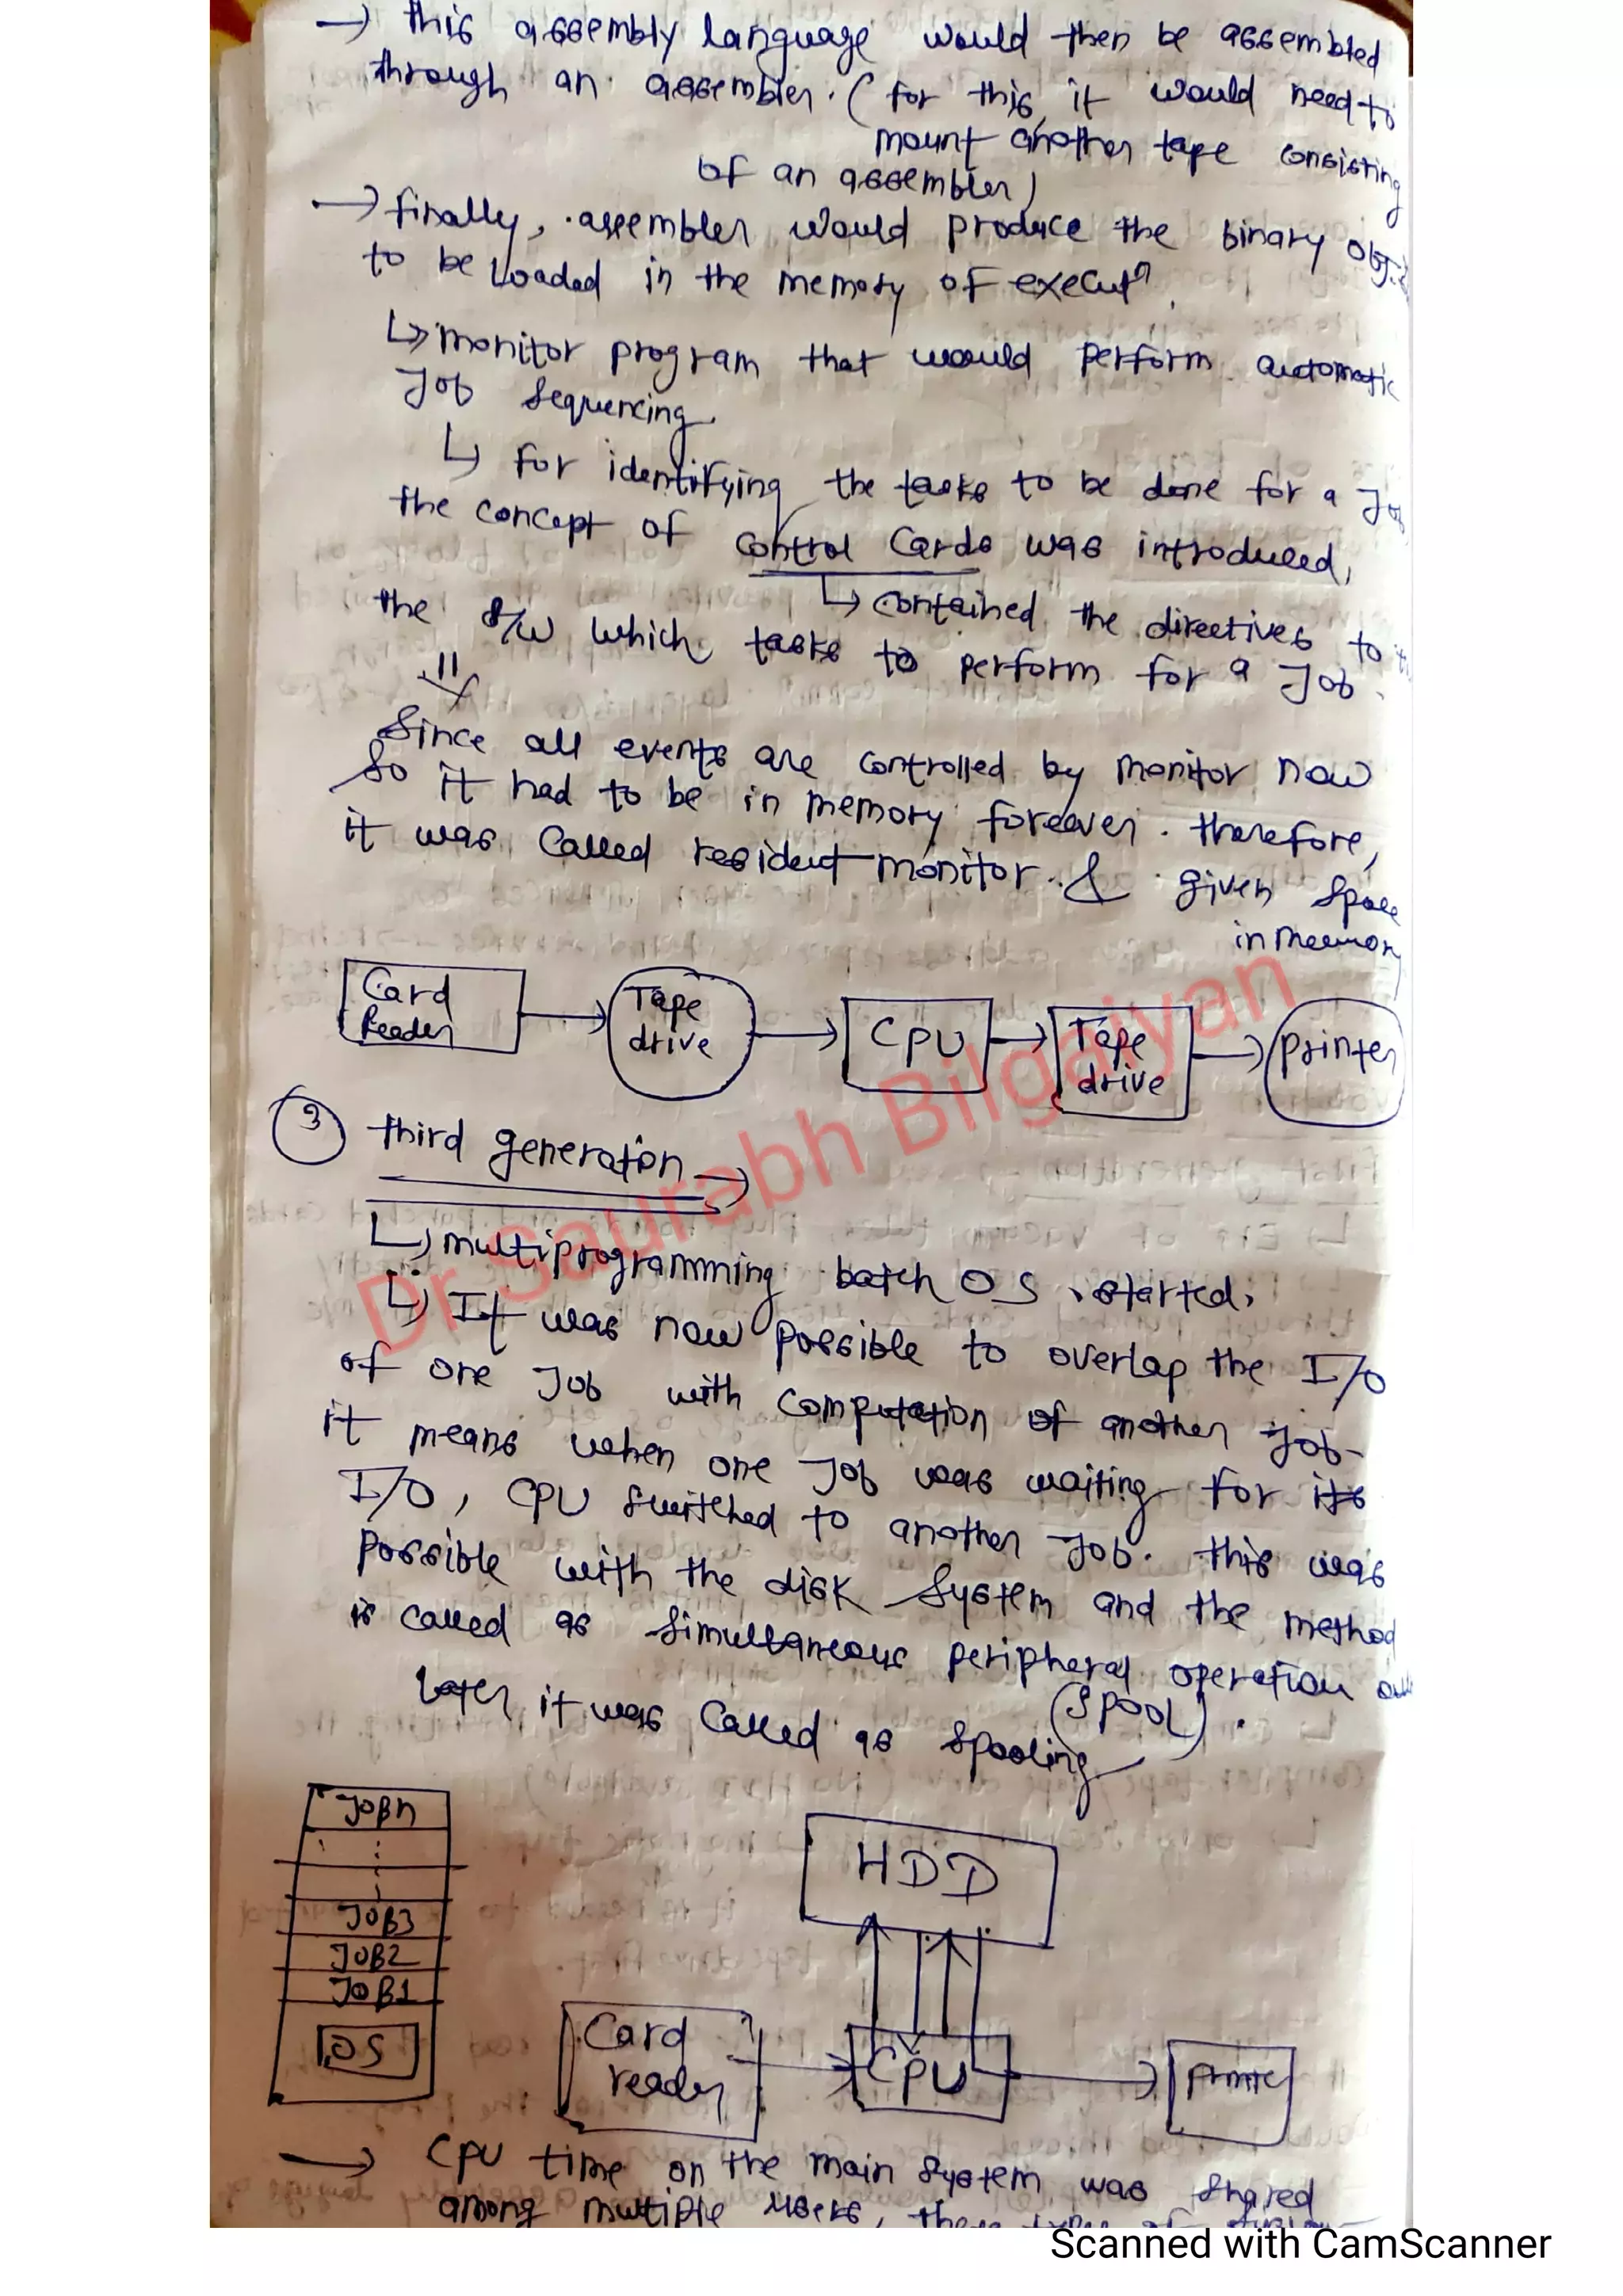 → this assembly language would then be assembled
through an assembler. (for this, it would need to
mount another tape consisting
of an assembler)
→ finally, assembler would produce the binary obj.
to be Loaded in the memory of execut^n.
↳ monitor program that would perform automatic
Job sequencing
↳ for identifying the tasks to be done for a Job
the concept of control Cards was introduced,
↳ contained the directives to
the S/W which tasks to perform for a Job.
Since all events are controlled by monitor now
so it had to be in memory foreaver. therefore,
it was Called resident monitor. & given space
in memory
Card Reader → Tape drive → CPU → Tape drive → printer
③ third generation →
↳ multiprogramming batch OS started.
↳ It was now possible to overlap the I/O
of one Job with computation of another job-
it means when one Job was waiting for its
I/O, CPU switched to another Job. this was
possible with the disk system and the method
is called as simultaneous peripheral operation
(SPOOL).
later it was Called as spooling
JOBn
JOB3
JOB2
JOB1
OS
HDD
Card reader → CPU → printer
→ CPU time on the main system was shared
among multiple users,
Dr Saurabh Bilgaiyan
Scanned with CamScanner